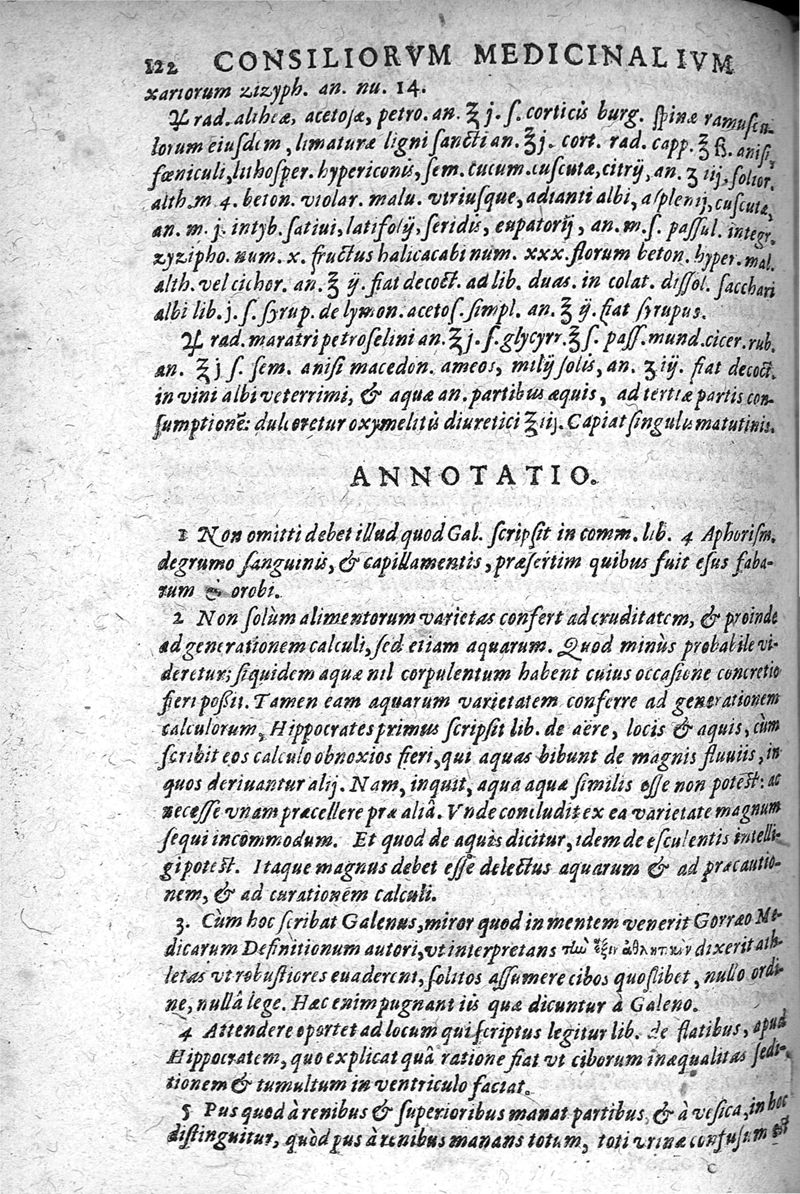 122 CONSILIORVM MEDICINALIVM
xariorum zizyph. an. nu. 14.
♃ rad. altheæ, acetosæ, petro. an. ℥ j. ſ. corticis burg. ſpinæ ramuſcu-
lorum eiuſdem, limaturæ ligni ſancti an. ℥ j. cort. rad. capp. ℥ ß. aniſi,
fœniculi, lithoſper. hypericonis, ſem. cucum. cuſcutæ, citrij, an. ʒ iij. folior.
alth. m. 4. beton. violar. malu. vtriuſque, adianti albi, aſplenij, cuſcutæ,
an. m. j. intyb. ſatiui, latifolij, ſeridis, eupatorij, an. m. ſ. paſſul. integr.
zyzipho. num. x. fructus halicacabi num. xxx. florum beton. hyper. mal.
alth. vel cichor. an. ℥ ij. fiat decoct. ad lib. duas. in colat. diſſol. ſacchari
albi lib. j. ſ. ſyrup. de lymon. acetoſ. ſimpl. an. ℥ ij. fiat ſyrupus.
♃ rad. maratri petroſelini an. ℥ j. ſ. glycyrr. ℥ ſ. paſſ. mund. cicer. rub.
an. ℥ j ſ. ſem. aniſi macedon. ameos, milij ſolis, an. ʒ iij. fiat decoct.
in vini albi veterrimi, & aquæ an. partibus æquis, ad tertiæ partis con-
ſumptionē: dulcoretur oxymelitis diuretici ℥ iij. Capiat ſingulis matutinis.
ANNOTATIO.
1 Non omitti debet illud quod Gal. ſcripſit in comm. lib. 4 Aphoriſm.
de grumo ſanguinis, & capillamentis, præſertim quibus fuit eſus faba-
rum & orobi.
2 Non ſolùm alimentorum varietas confert ad cruditatem, & proinde
ad generationem calculi, ſed etiam aquarum. Quod minùs probabile vi-
deretur; ſiquidem aquæ nil corpulentum habent cuius occaſione concretio
fieri poßit. Tamen eam aquarum varietatem conferre ad generationem
calculorum, Hippocrates primus ſcripſit lib. de aëre, locis & aquis, cùm
ſcribit eos calculo obnoxios fieri, qui aquas bibunt de magnis fluuiis, in
quos deriuantur alij. Nam, inquit, aqua aquæ ſimilis eſſe non poteſt: ac
neceſſe vnam præcellere præ aliâ. Vnde concludit ex ea varietate magnum
ſequi incommodum. Et quod de aquis dicitur, idem de eſculentis intelli-
gi poteſt. Itaque magnus debet eſſe delectus aquarum & ad præcautio-
nem, & ad curationem calculi.
3. Cùm hoc ſcribat Galenus, miror quod in mentem venerit Gorræo Me-
dicarum Definitionum autori, vt interpretans τὴν ἕξιν ἀθλητικὴν dixerit ath-
letas vt robuſtiores euaderent, ſolitos aſſumere cibos quoſlibet, nullo ordi-
ne, nullâ lege. Hæc enim pugnant iis quæ dicuntur à Galeno.
4 Attendere oportet ad locum qui ſcriptus legitur lib. de flatibus, apud
Hippocratem, quo explicat quâ ratione fiat vt ciborum inæqualitas ſedi-
tionem & tumultum in ventriculo faciat.
5 Pus quod à renibus & ſuperioribus manat partibus, & à veſica, in hoc
diſtinguitur, quòd pus à renibus manans totum, toti vrinæ confuſum eſt